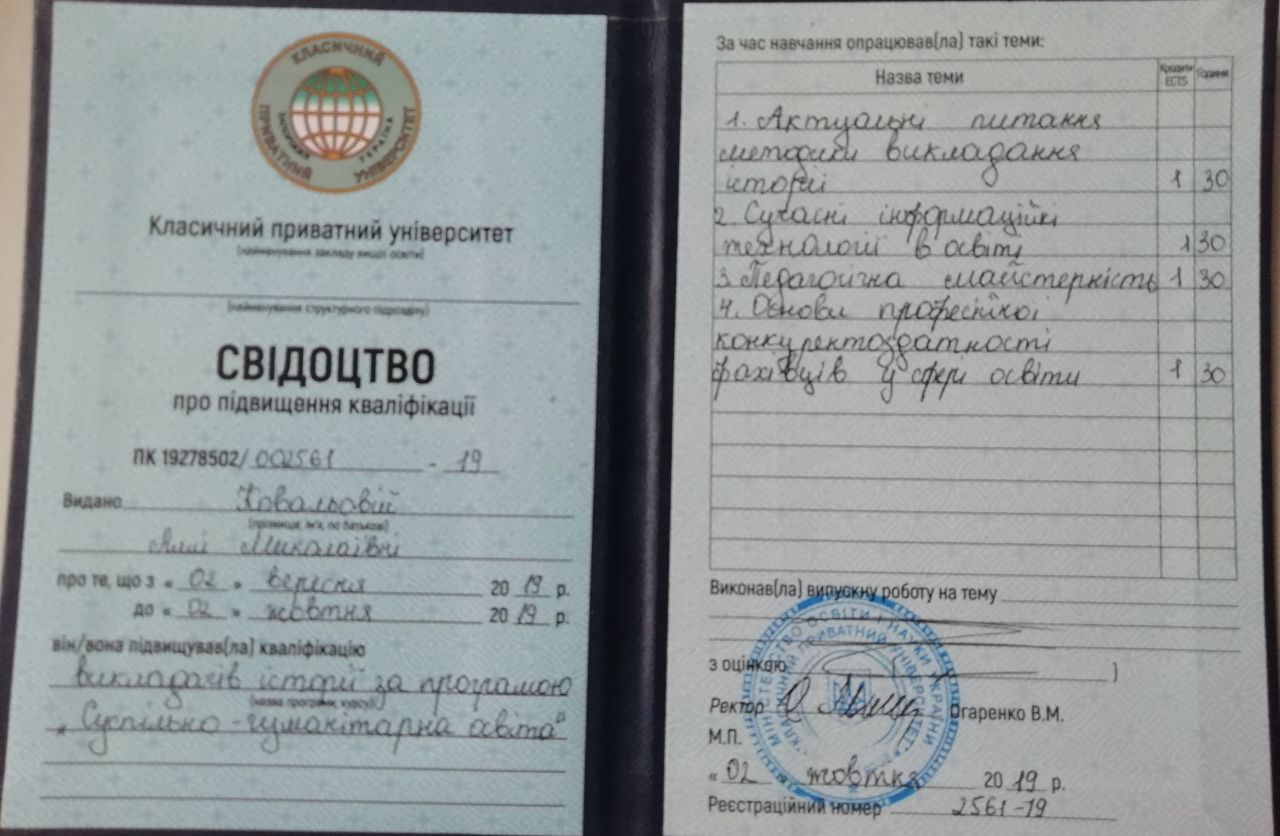 КЛАСИЧНИЙ
ПРИВАТНИЙ УНІВЕРСИТЕТ
УКРАЇНА
Класичний приватний університет
(найменування закладу вищої освіти)
(найменування структурного підрозділу)
СВІДОЦТВО
про підвищення кваліфікації
ПК 19278502/ 002561 - 19
Видано Ковальовій
(прізвище, ім'я, по батькові)
Аллі Миколаївні
про те, що з « 02 » вересня 20 19 р.
до « 02 » жовтня 20 19 р.
він/вона підвищував(ла) кваліфікацію
викладачів історії за програмою
(назва програми, курсу)
„Суспільно-гуманітарна освіта"
За час навчання опрацював(ла) такі теми:
Назва теми Кредити ECTS Години
1. Актуальні питання
методики викладання
історії 1 30
2. Сучасні інформаційні
технології в освіті 1 30
3. Педагогічна майстерність 1 30
4. Основи професійної
конкурентоздатності
фахівців у сфері освіти 1 30
Виконав(ла) випускну роботу на тему
з оцінкою )
Ректор Огаренко В.М.
М.П.
« 02 жовтня 20 19 р.
Реєстраційний номер 2561-19
МІНІСТЕРСТВО ОСВІТИ І НАУКИ УКРАЇНИ
КЛАСИЧНИЙ ПРИВАТНИЙ УНІВЕРСИТЕТ